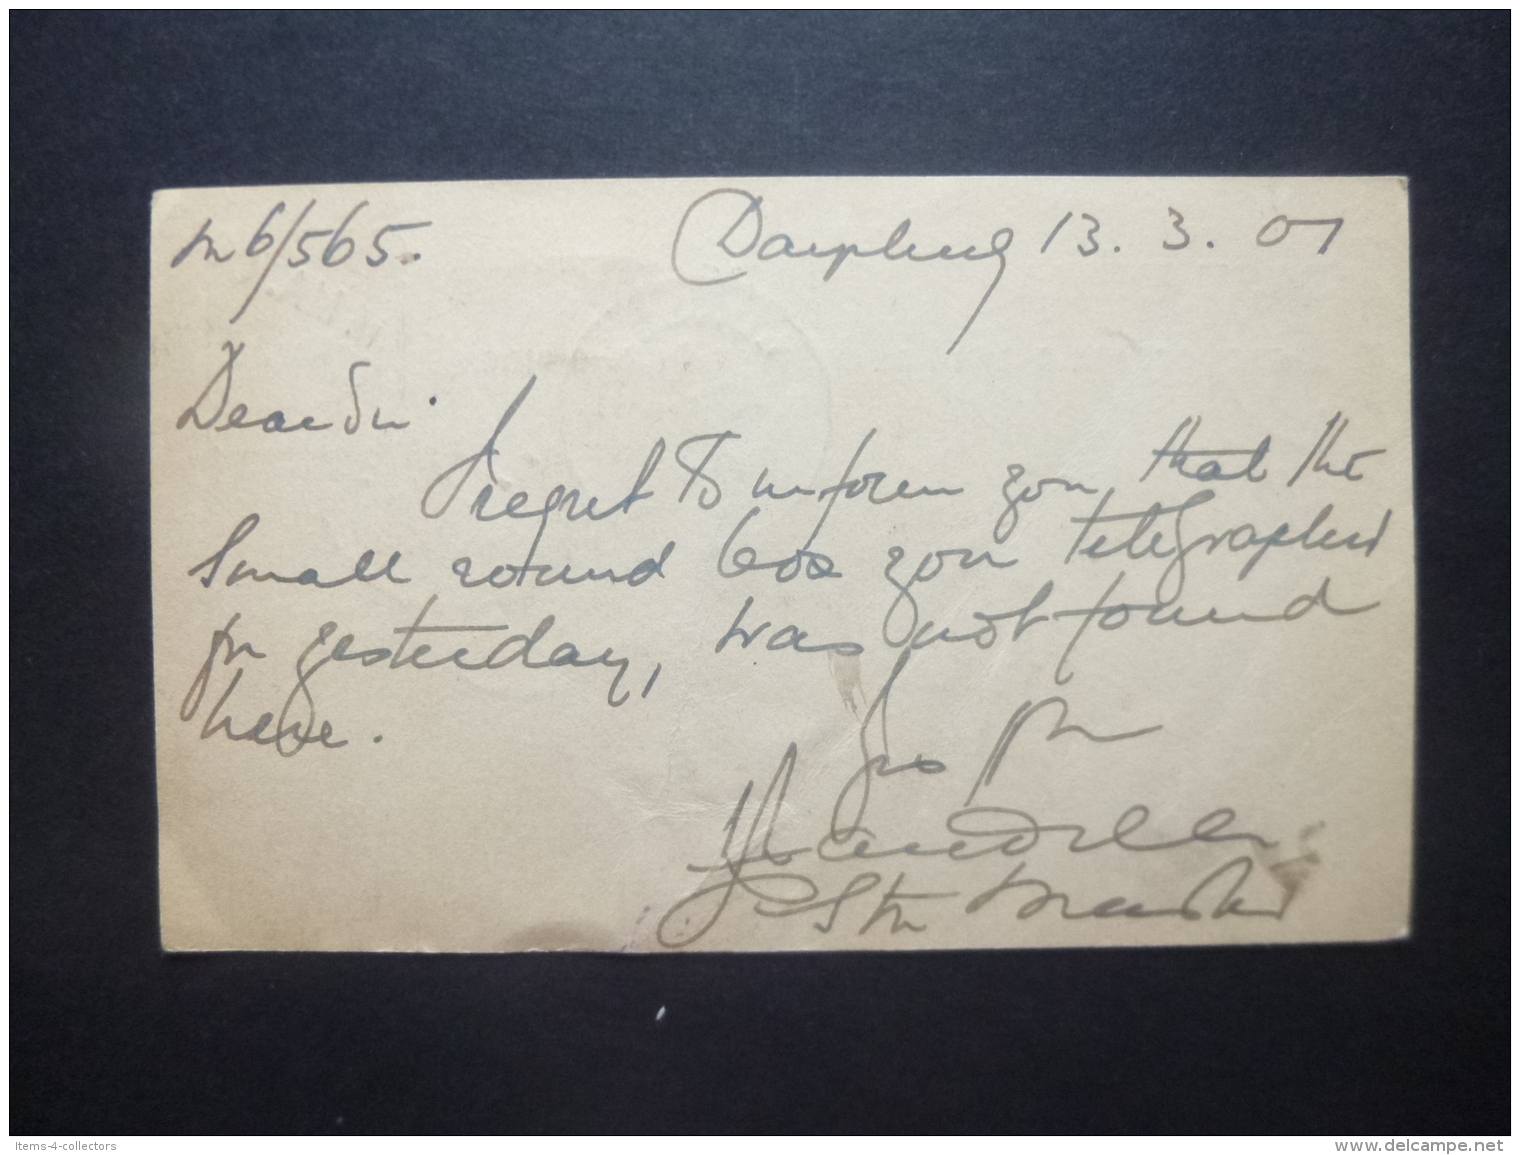 m6/565. Darjeeling 13. 3. 01
Dear Sir.
I regret to inform you that the
small round box you telegraphed
for yesterday, was not found
here.
Yrs
Stn Master
Items-4-collectors
www.delcampe.net